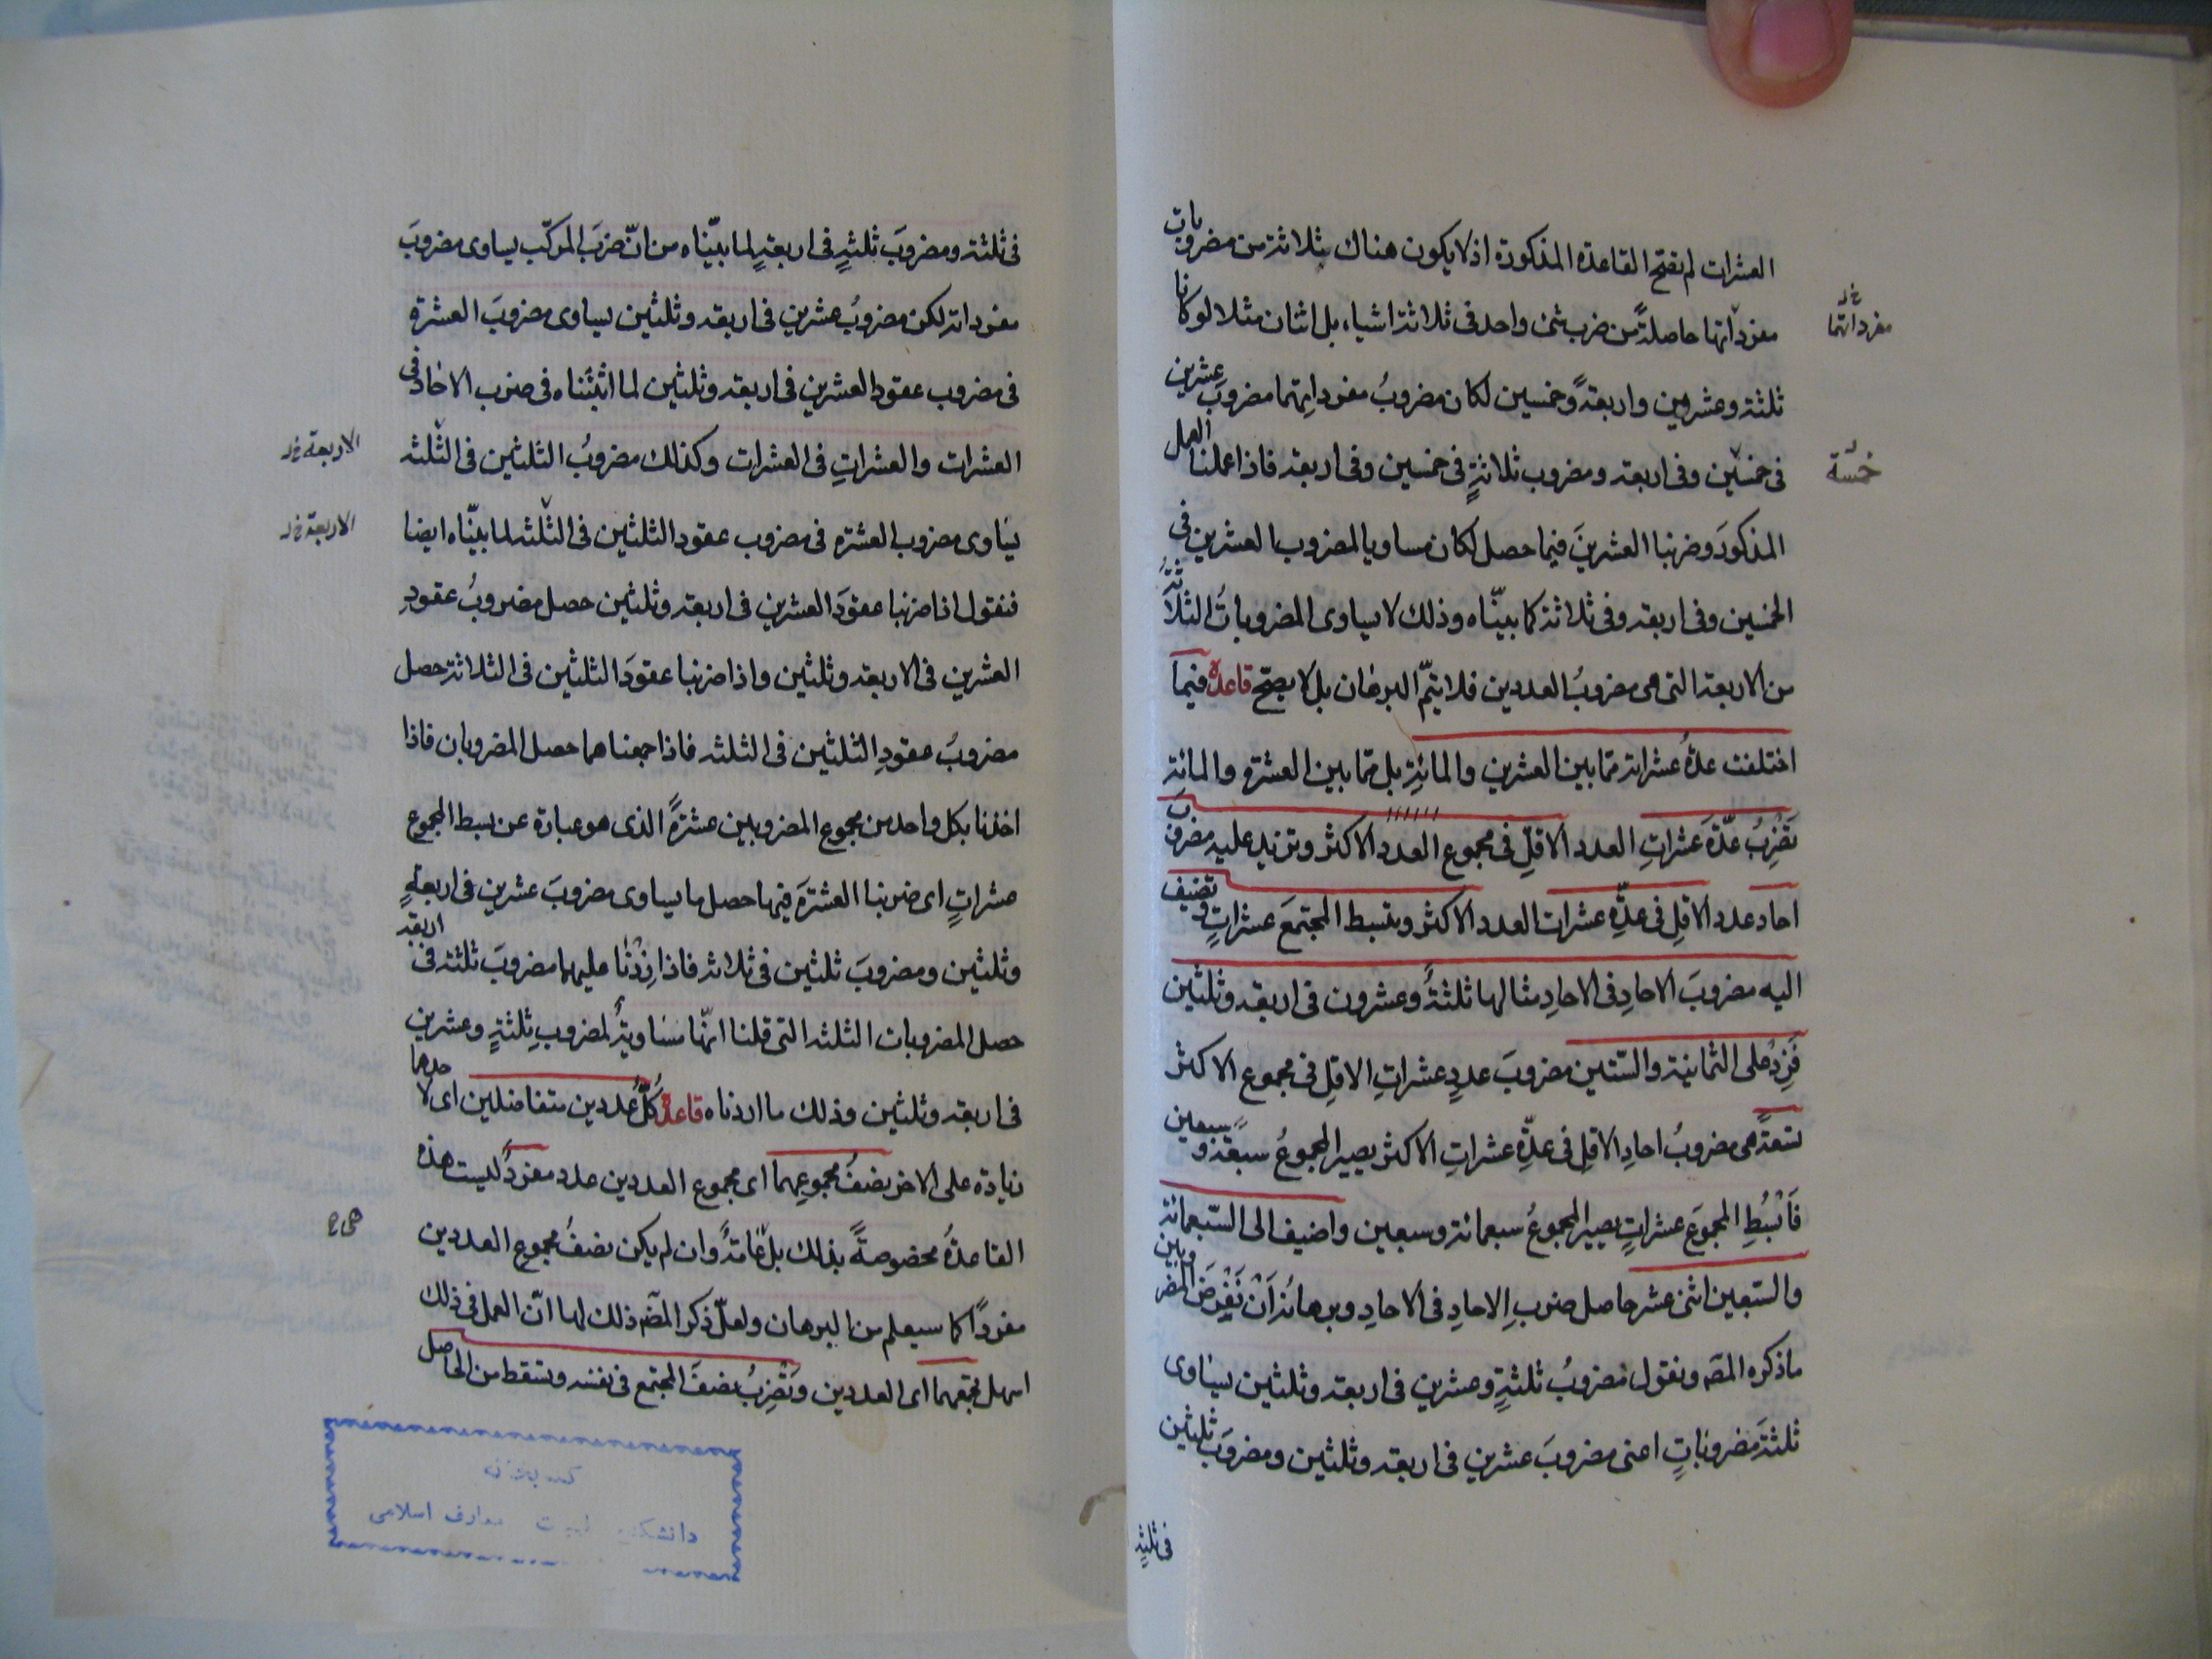 العشرات لم تفتح القاعدة المذكورة اذ لا يكون هناك ثلاثة من مضروبات
مفرداتها حاصلةً من ضرب شئ واحد فى ثلاثة اشياء بل اثنان مثلا لو كانا
مفرداتهما خ ل
ثلثة وعشرين واربعةً وخمسين لكان مضروبُ مفرداتهما مضروبَ عشرين
فى خمسين وفى اربعه ومضروب ثلاثةٍ فى خمسين وفى اربعه فاذا عملنا العمل
خمسة
المذكورَ وضربنا العشرينَ فيما حصل لكان مساويا لمضروب العشرين فى
الخمسين وفى اربعه وفى ثلاثة كما بيّناه وذلك لا يساوى المضروباتُ الثلاثةُ
من الاربعة التى هى مضروبُ العددين فلا يتمّ البرهان بل لا يصحّ قاعدة فيما
اختلفت عدّةُ عشراته مما بين العشرين والمائةِ بل مما بين العشرة والمائة
تَضْرِبُ عدّةَ عشراتِ العدد الاقلّ فى مجموع العدد الاكثر وتزيد عليه مضروبَ
احاد عدد الاقلِ فى عدّةِ عشرات العدد الاكثر وتبسط المجتمعَ عشراتٍ وتضيف
اليه مضروبَ الاحادِ فى الاحادِ مثالها ثلثةٌ وعشرون فى اربعه وثلثين
فَزِدْ على الثمانية والستين مضروبَ عددِ عشراتِ الاقلِ فى مجموع الاكثر
تسعةً هى مضروبُ احادِ الاقلِ فى عدّةِ عشراتِ الاكثر يصير المجموعُ سبعةً وسبعين
فَابْسُطِ المجموعَ عشراتٍ يصير المجموعُ سبعمائة وسبعين واضيف الى السّبعمائة
والسّبعين اثنى عشر حاصل ضربِ الاحادِ فى الاحادِ وبرهانُه اَنْ نَفْرِضَ
ما ذكره المصَ ونقول مضروبُ ثلثةٍ وعشرين فى اربعه وثلثين يساوى
ثلثةَ مضروباتٍ اعنى مضروبَ عشرين فى اربعه وثلثين ومضروبَ ثلثين
فى ثلثةٍ
فى ثلثة ومضروبَ ثلثةٍ فى اربعةٍ لما بيّناه من انّ ضربَ المركّب يساوى مضروبَ
مفرداته لكن مضروبُ عشرين فى اربعه وثلثين يساوى مضروبَ العشرة
فى مضروب عقود العشرين فى اربعه وثلثين لما اثبتناه فى ضرب الاحاد فى
العشرات والعشراتِ فى العشرات وكذلك مضروبُ الثلثين فى الثلثه
الاربعة خ ل
يساوى مضروب العشرة فى مضروب عقود الثلثين فى الثلثه لما بيّناه ايضا
الاربعة خ ل
فنقول اذا ضربنا عقودَ العشرين فى اربعه وثلثين حصل مضروبُ عقودِ
العشرين فى الاربعه وثلثين واذا ضربنا عقودَ الثلثين فى الثلاثة حصل
مضروبُ عقودِ الثلثين فى الثلثه فاذا جمعناهما حصل المضروبان فاذا
اخذنا بكل واحد من مجموع المضروبين عشرةً الذى هو عبارة عن بسط المجموع
عشراتٍ اى ضربنا العشرةَ فيها حصل ما يساوى مضروبَ عشرين فى اربعةٍ
وثلثين ومضروبَ ثلثين فى ثلاثه فاذا زِدْنا عليهما مضروبَ ثلثه فى اربعه
حصل المضروبات الثلثه التى قلنا انّها مساويةٌ لمضروبِ ثلثةٍ وعشرين
فى اربعه وثلثين وذلك ما اردناه قاعدة كلُّ عددين متفاضلين اى لاحدهما
زيادة على الاخر نصفُ مجموعِهما اى مجموع العددين عدد مفردٌ ليست هذه
القاعدةُ مخصوصةً بذلك بل عامّةٌ وان لم يكن نصفُ مجموع العددين
مفرداً كما سيعلم من البرهان ولعلّ ذكر المصَ ذلك لها انّ العمل فى ذلك
اسهل تجمعهما اى العددين وتَضْرِبُ نصفَ المجتمع فى نفسه وتسقط من الحاصل
كتابخانه
دانشكده معارف اسلامى